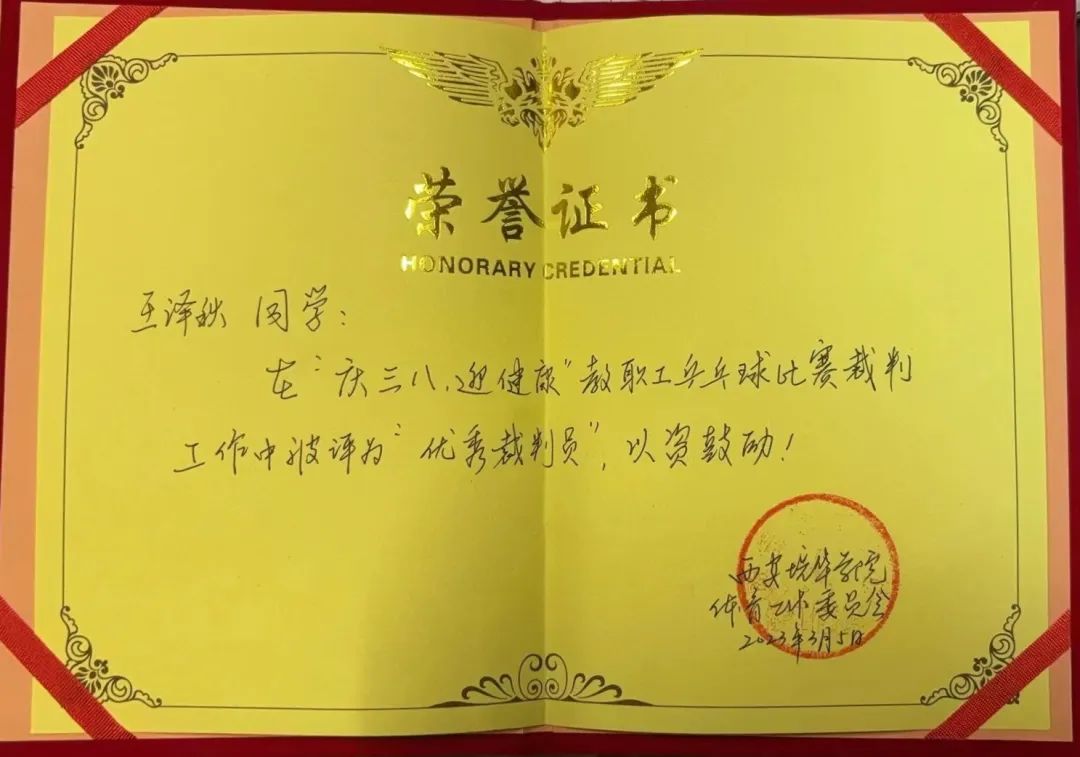 荣誉证书
HONORARY CREDENTIAL
王泽秋 同学：
在“庆三八，迎健康”教职工乒乓球比赛裁判
工作中被评为“优秀裁判员”，以资鼓励！
西安培华学院
体育工作委员会
2023年3月5日